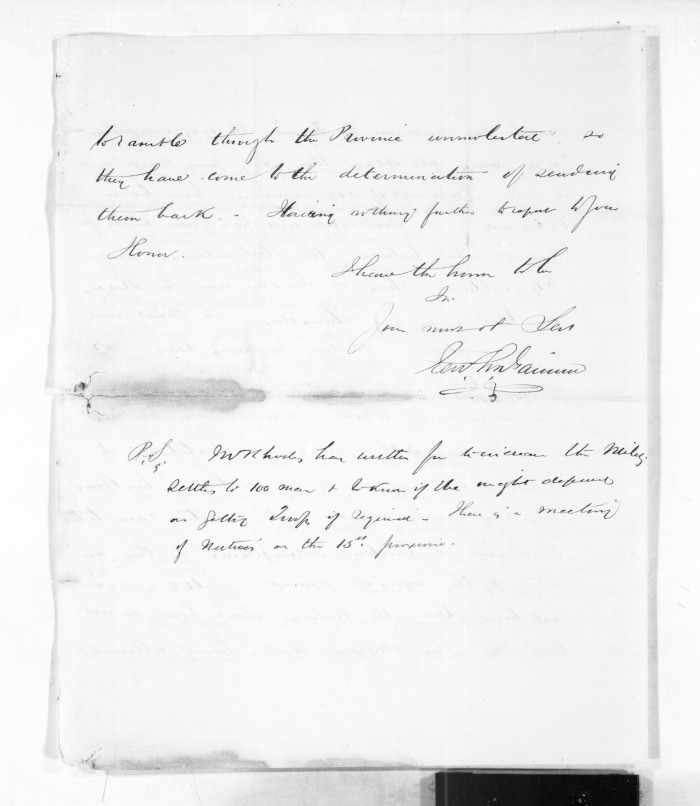 to ramble through the Province unmolested so
they have come to the determination of sending
them back. - Having nothing further to report to Your
Honor.
I have the honor to be
Sir
Your most ob Serv
P.S. Mr Rhodes has written for to increase the Militry
Settlrs to 100 men & to know if he might depend
on getting Troops if required - There is a meeting
of Natives on the 15th proximo.